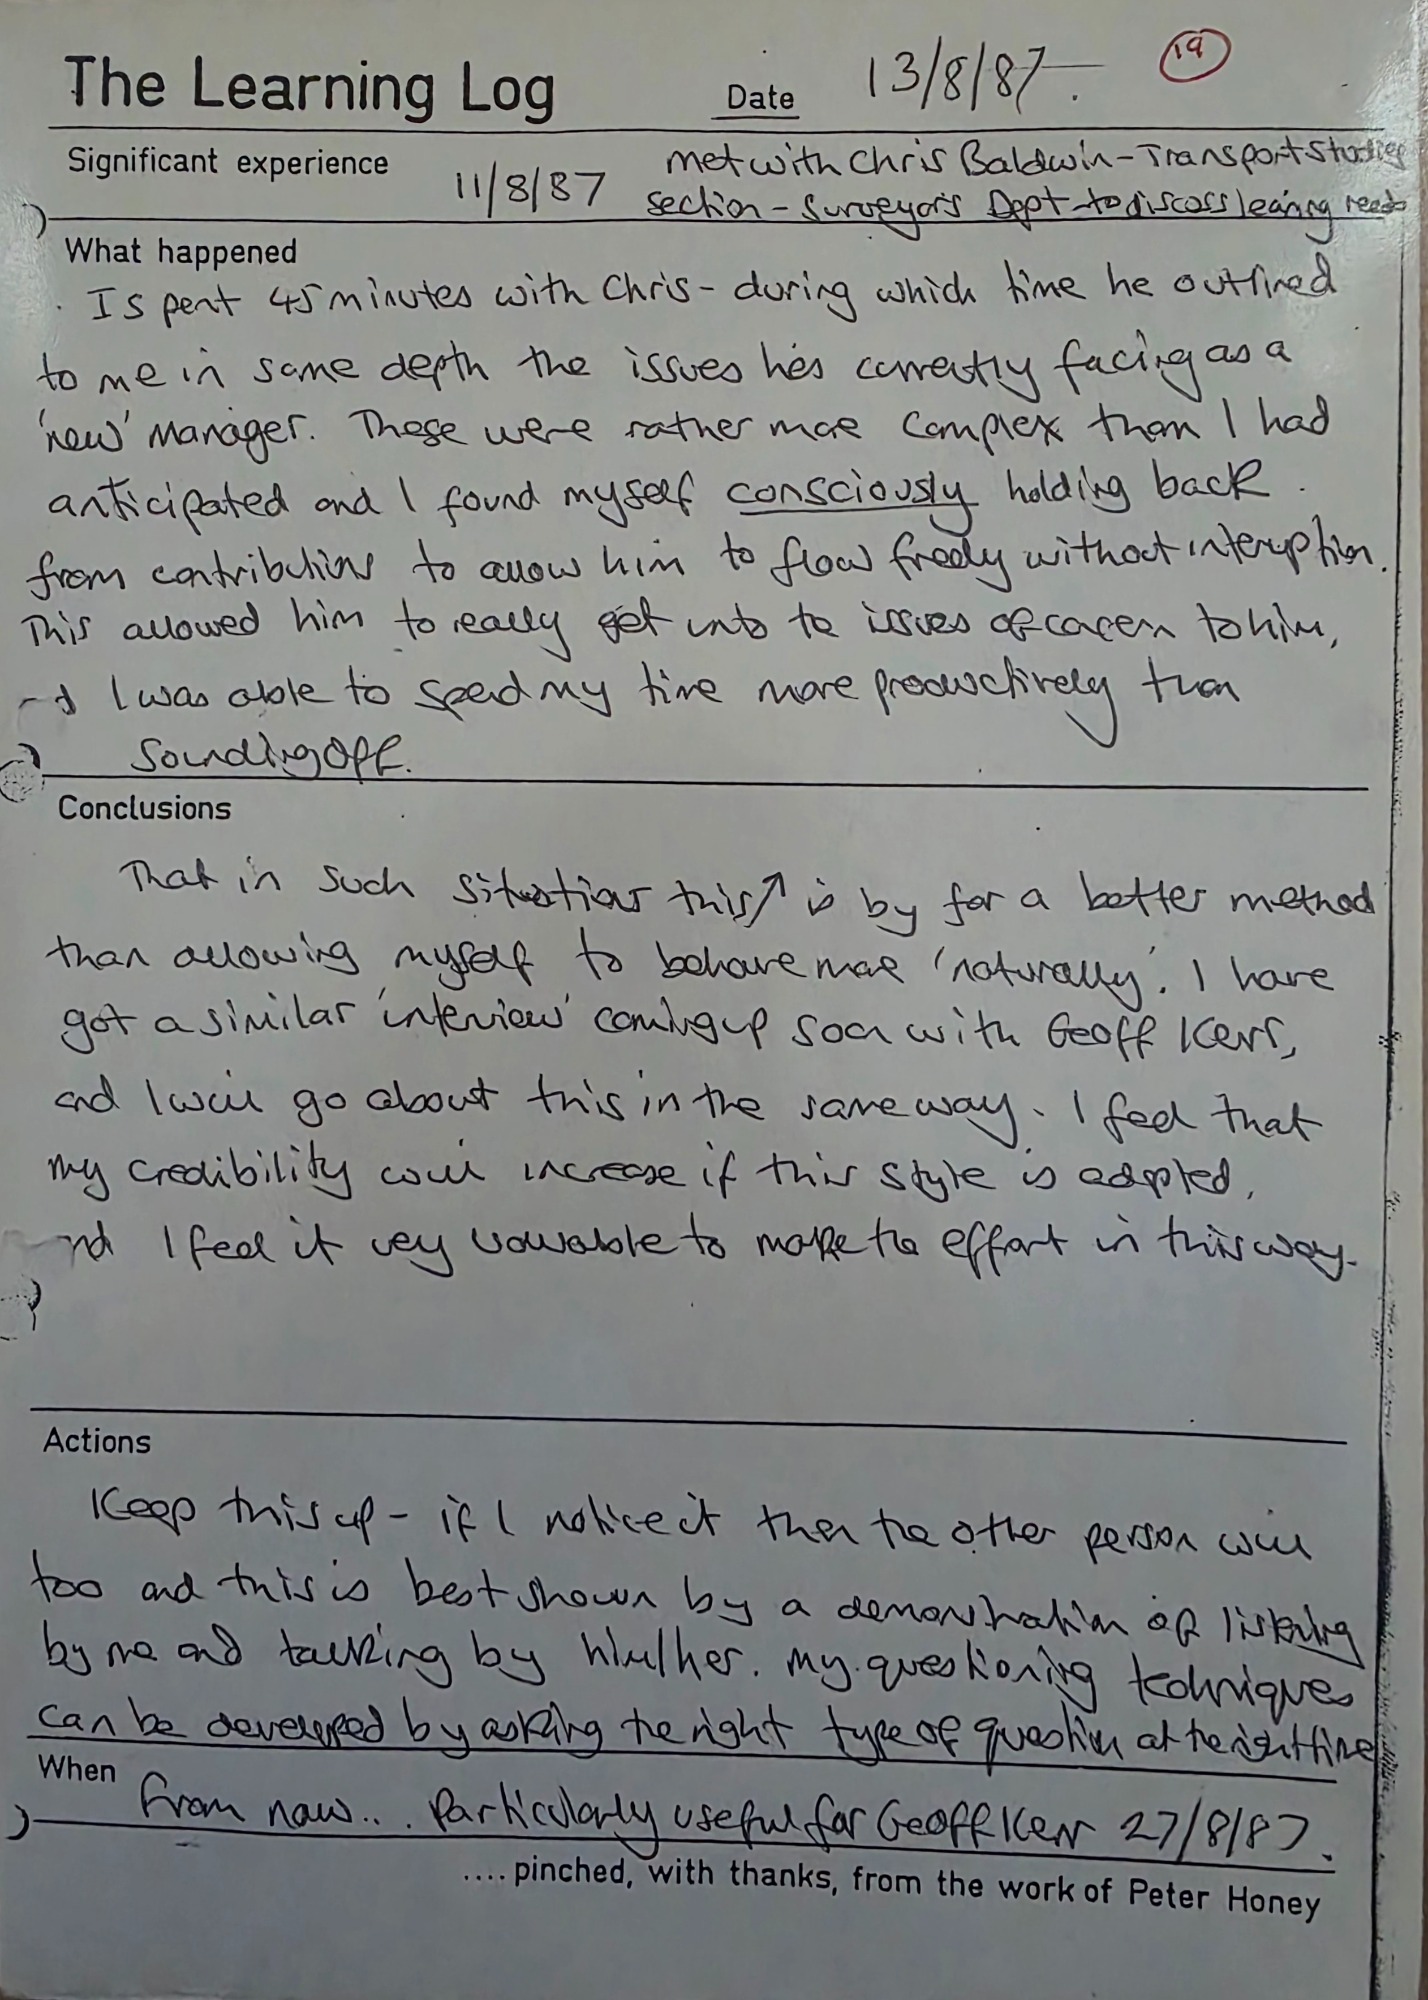 The Learning Log Date 13/8/87. 19
Significant experience 11/8/87 met with Chris Baldwin - Transport Studies
section - Surveyor's Dept - to discuss learning needs
What happened
I spent 45 minutes with Chris - during which time he outlined
to me in some depth the issues he's currently facing as a
'new' manager. These were rather more complex than I had
anticipated and I found myself consciously holding back
from contributions to allow him to flow freely without interuption.
This allowed him to really get into the issues of concern to him,
I was able to spend my time more productively than
sounding off.
Conclusions
That in such situations this ↗ is by far a better method
than allowing myself to behave more 'naturally'. I have
got a similar 'interview' coming up soon with Geoff Kerr,
and I will go about this in the same way. I feel that
my credibility will increase if this style is adopted,
and I feel it very valuable to make the effort in this way.
Actions
Keep this up - if I notice it then the other person will
too and this is best shown by a demonstration of listening
by me and talking by him/her. My questioning techniques
can be developed by asking the right type of question at the right time
When from now... Particularly useful for Geoff Kerr 27/8/87.
....pinched, with thanks, from the work of Peter Honey